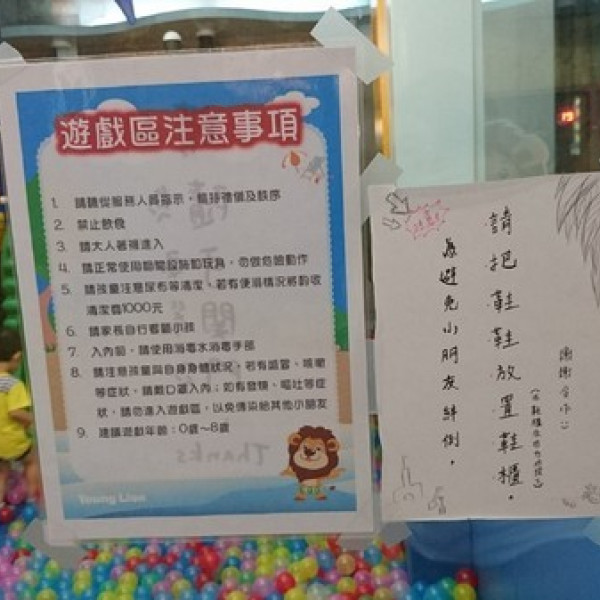 遊戲區注意事項
1. 請聽從服務人員指示，維持禮儀及秩序
2. 禁止飲食
3. 請大人著襪進入
4. 請正常使用期間設施和玩具，勿做危險動作
5. 請孩童注意尿布等清潔，若有便溺情況將酌收
清潔費1000元
6. 請家長自行看顧小孩
7. 入內前，請使用消毒水消毒手部
8. 請注意孩童與自身身體狀況，若有感冒、咳嗽
等症狀，請戴口罩入內；如有發燒、嘔吐等症
狀，請勿進入遊戲區，以免傳染給其他小朋友
9. 建議遊戲年齡：0歲～8歲
Thanks
Young Lion
注意!
為避免小朋友絆倒，
請把鞋鞋放置鞋櫃。
謝謝合作